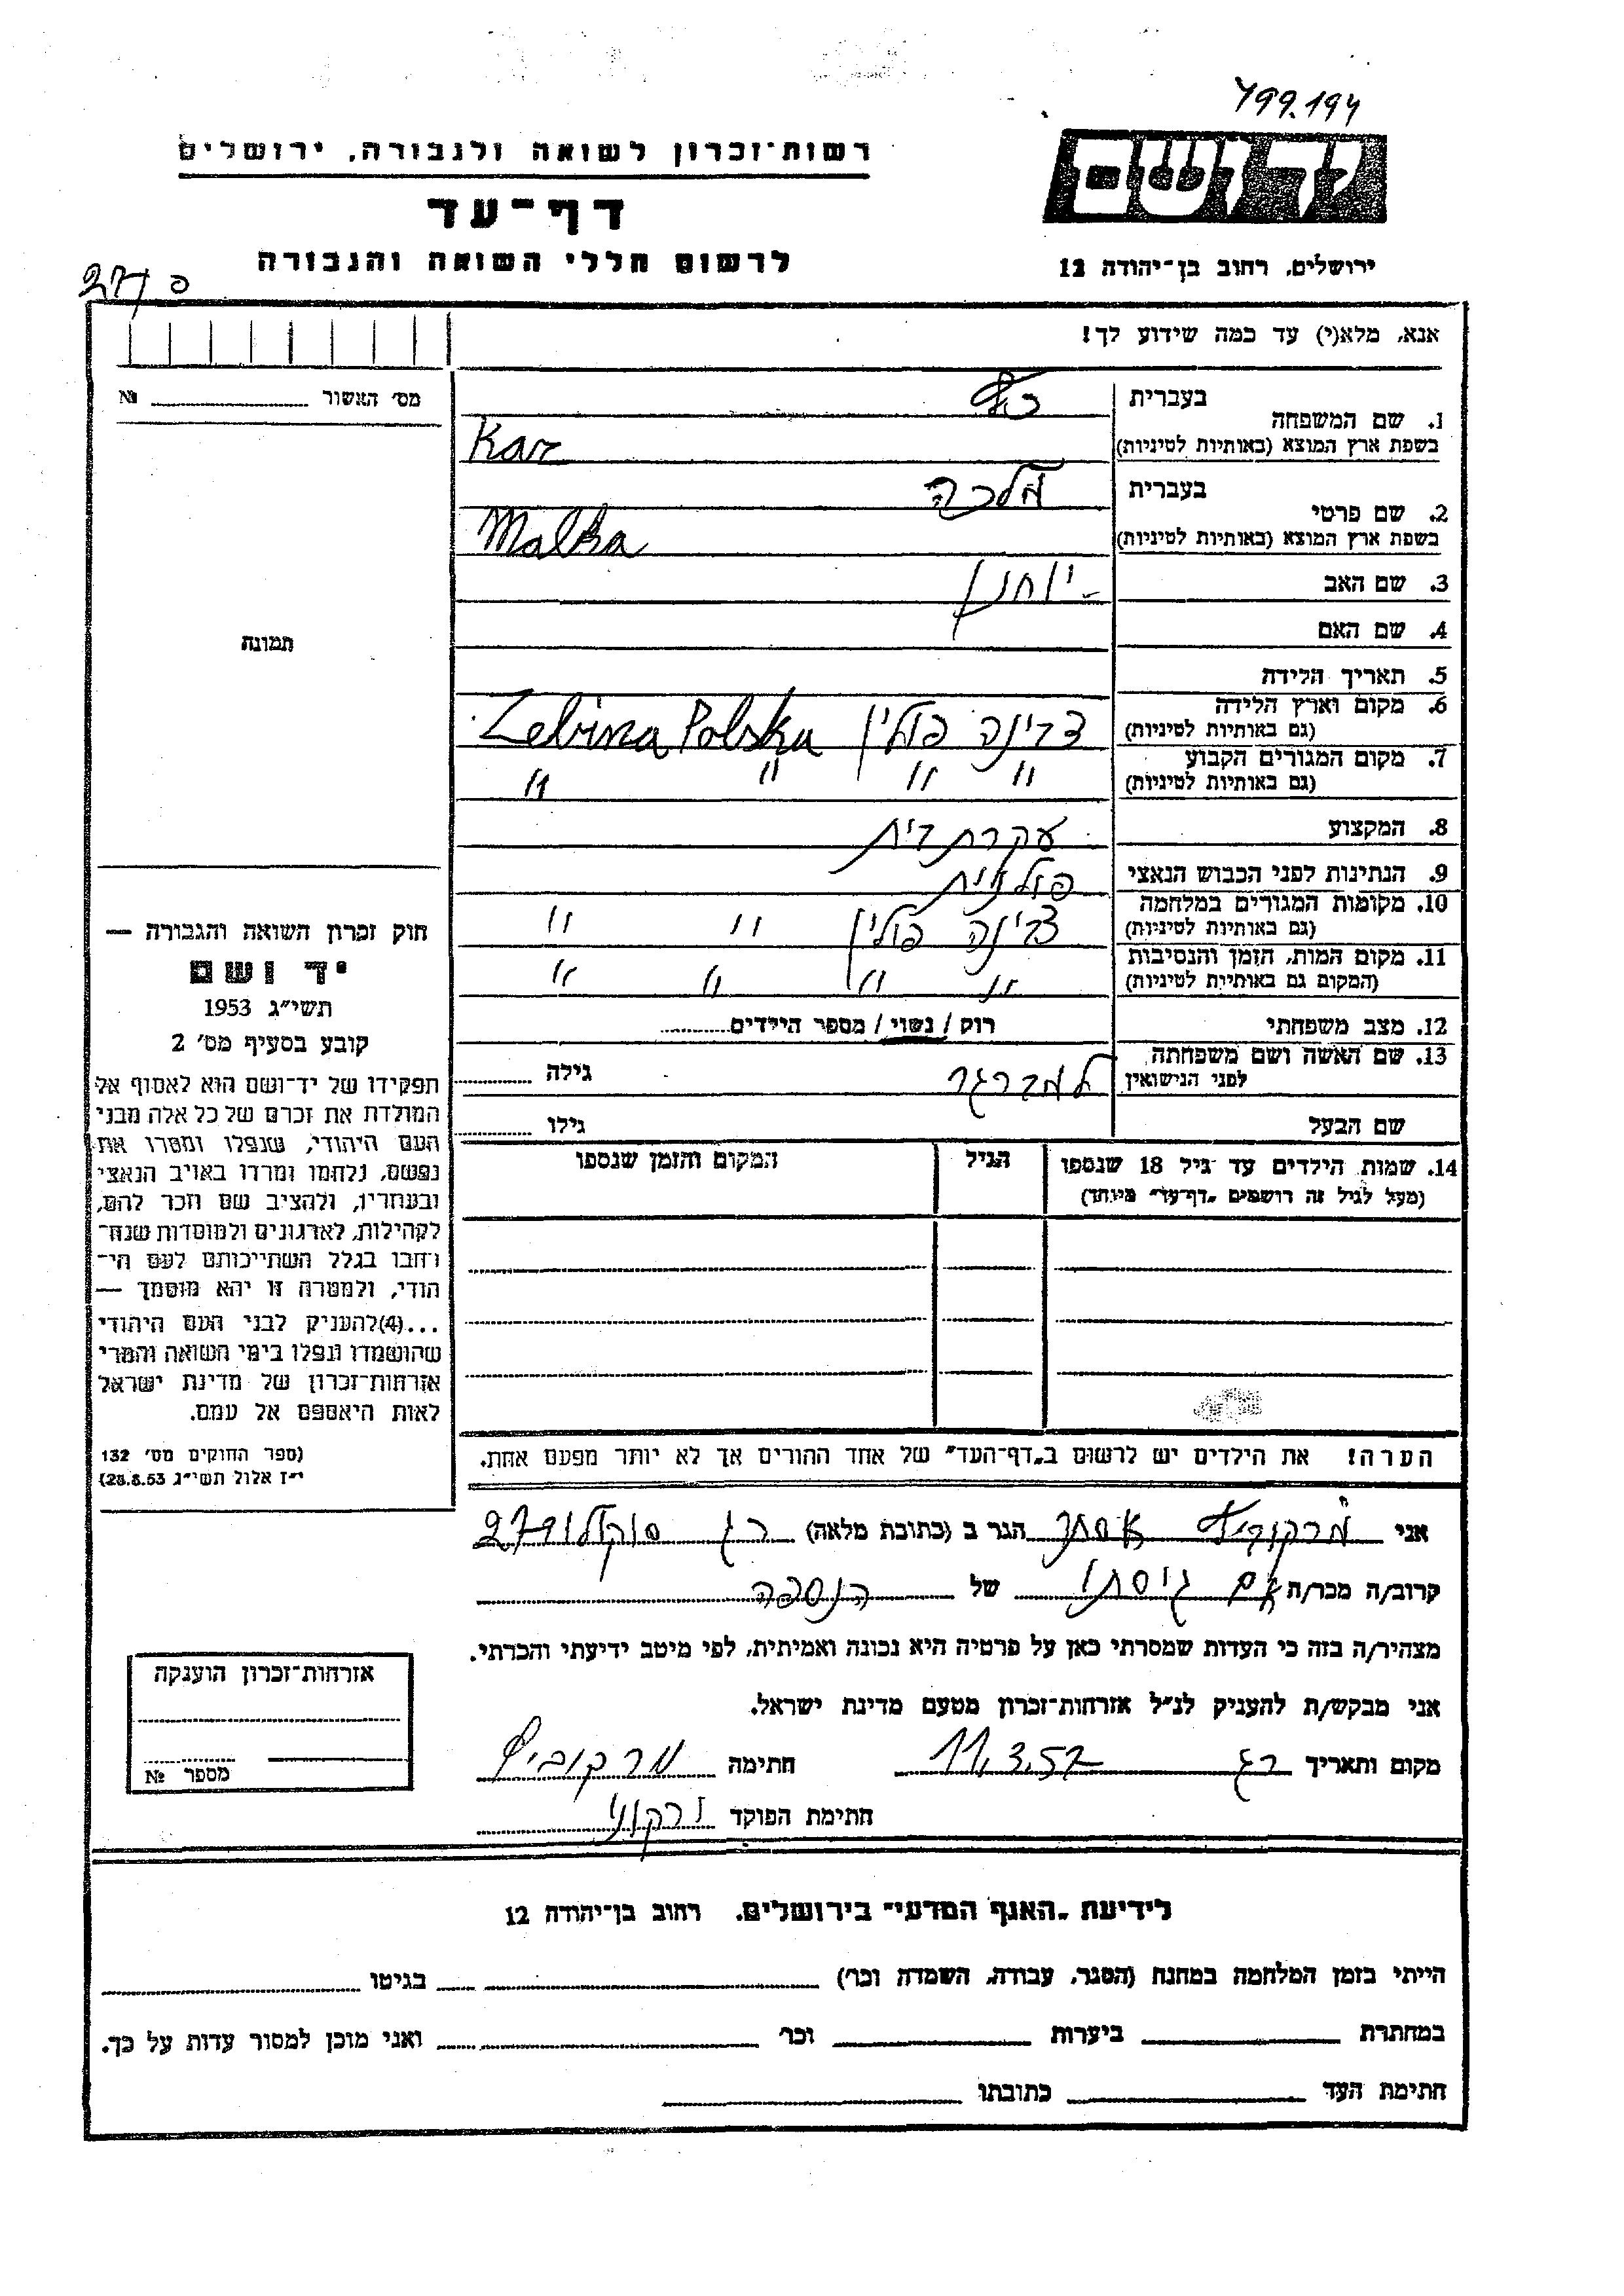 799.194
רשות־זכרון לשואה ולגבורה, ירושלים
יד ושם
דף־עד
לרשום חללי השואה והגבורה
ירושלים, רחוב בן־יהודה 12
אנא, מלא(י) עד כמה שידוע לך!
מס׳ האשור № 
תמונה
חוק זכרון השואה והגבורה —
יד ושם
תשי״ג 1953
קובע בסעיף מס׳ 2
תפקידו של יד־ושם הוא לאסוף אל
המולדת את זכרם של כל אלה מבני
העם היהודי, שנפלו ומסרו את
נפשם, נלחמו ומרדו באויב הנאצי
ובעוזריו, ולהציב שם וזכר להם,
לקהילות, לארגונים ולמוסדות שנח־
רבו בגלל השתייכותם לעם הי־
הודי, ולמטרה זו יהא מוסמך —
...(4)להעניק לבני העם היהודי
שהושמדו ונפלו בימי השואה והמרי
אזרחות־זכרון של מדינת ישראל
לאות היאספם אל עמם.
(ספר החוקים מס׳ 132
י״ז אלול תשי״ג 28.8.53)
1. שם המשפחה
בעברית
בשפת ארץ המוצא (באותיות לטיניות) Kaz
2. שם פרטי
בעברית מלכה
בשפת ארץ המוצא (באותיות לטיניות) Malka
3. שם האב יוחנן
4. שם האם
5. תאריך הלידה
6. מקום וארץ הלידה
(גם באותיות לטיניות) פולין Polska
7. מקום המגורים הקבוע
(גם באותיות לטיניות) " " " "
8. המקצוע עקרת בית
9. הנתינות לפני הכבוש הנאצי פולנית
10. מקומות המגורים במלחמה
(גם באותיות לטיניות) פולין " "
11. מקום המות, הזמן והנסיבות
(המקום גם באותיות לטיניות) " " " "
12. מצב משפחתי רוק / נשוי / מספר הילדים
13. שם האשה ושם משפחתה
לפני הנישואין למברגר גילה
שם הבעל גילו
14. שמות הילדים עד גיל 18 שנספו הגיל המקום והזמן שנספו
(מעל לגיל זה רושמים „דף־עד״ מיוחד)
הערה! את הילדים יש לרשום ב„דף־העד״ של אחד ההורים אך לא יותר מפעם אחת.
אני מרקוביץ אסתר הגר ב (כתובת מלאה) רג סוקולוב 27
קרוב/ה מכר/ת גיסתו של הנספה
מצהיר/ה בזה כי העדות שמסרתי כאן על פרטיה היא נכונה ואמיתית, לפי מיטב ידיעתי והכרתי.
אני מבקש/ת להעניק לנ״ל אזרחות־זכרון מטעם מדינת ישראל.
מקום ותאריך רג 11.3.57 חתימה מרקוביץ
חתימת הפוקד
אזרחות־זכרון הוענקה
מספר №
לידיעת „האגף המדעי״ בירושלים, רחוב בן־יהודה 12
הייתי בזמן המלחמה במחנה (הסגר, עבודה, השמדה וכו׳) בגיטו
במחתרת ביערות וכו׳ ואני מוכן למסור עדות על כך.
חתימת העד כתובתו